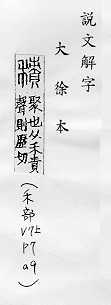 說文解字
大徐本
積 聚也从禾責
聲則歷切
(禾部
V7上
p7
a9)